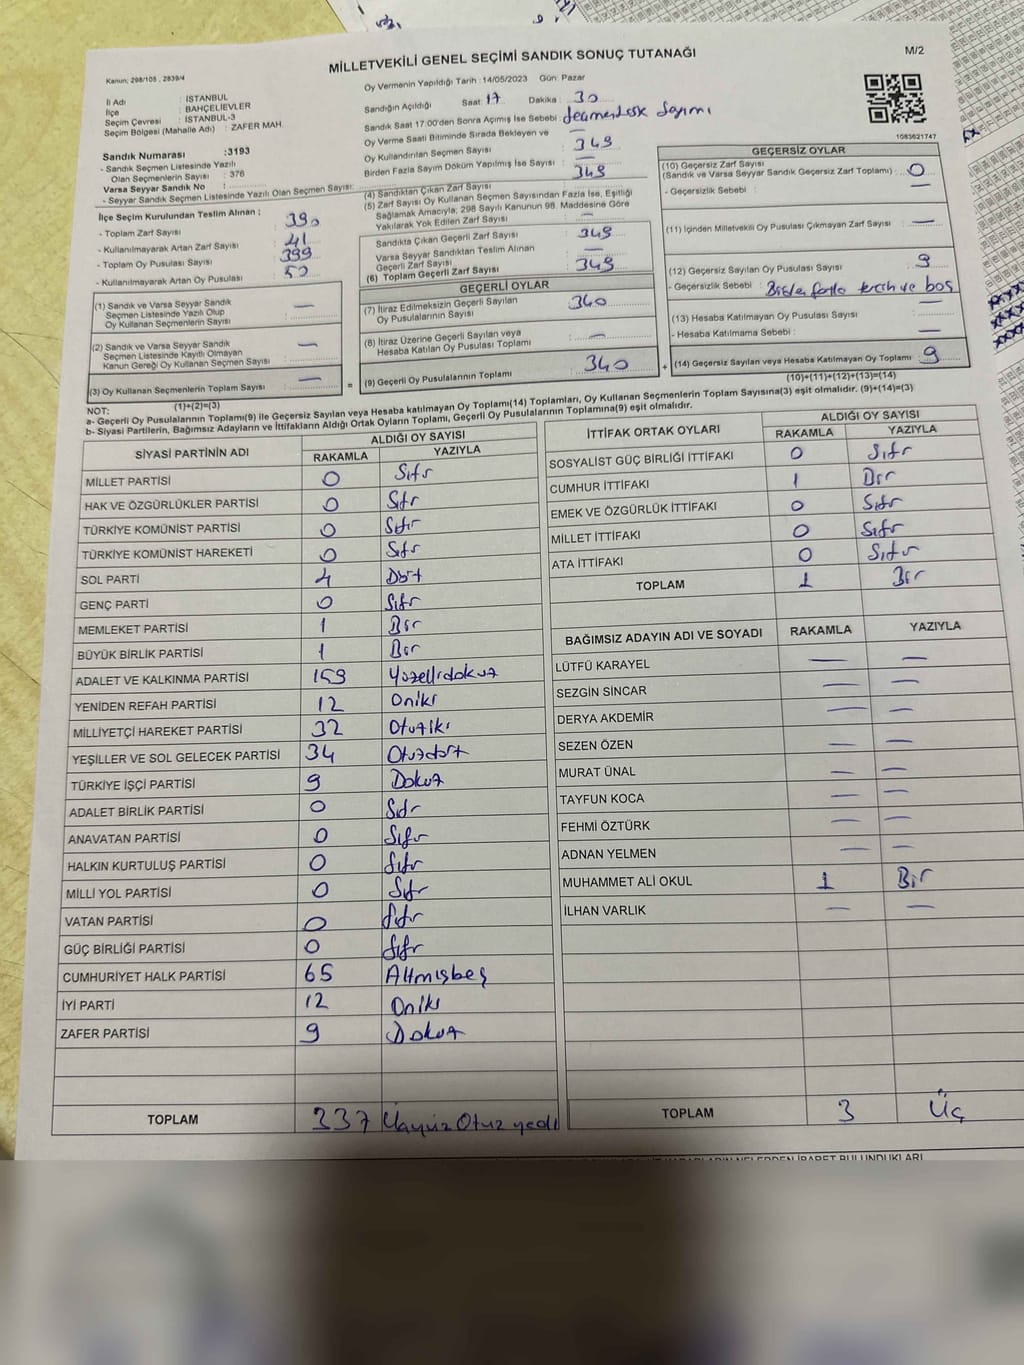 MİLLETVEKİLİ GENEL SEÇİMİ SANDIK SONUÇ TUTANAĞI
M/2
Kanun; 298/105 , 2839/4
İl Adı : İSTANBUL
İlçe : BAHÇELİEVLER
Seçim Çevresi : İSTANBUL-3
Seçim Bölgesi (Mahalle Adı) : ZAFER MAH.
Sandık Numarası :3193
- Sandık Seçmen Listesinde Yazılı
Olan Seçmenlerin Sayısı : 376
Varsa Seyyar Sandık No :
- Seyyar Sandık Seçmen Listesinde Yazılı Olan Seçmen Sayısı:
Oy Vermenin Yapıldığı Tarih : 14/05/2023 Gün: Pazar
Sandığın Açıldığı Saat 17 Dakika : 30
Sandık Saat 17:00'den Sonra Açımış İse Sebebi :
Oy Verme Saati Bitiminde Sırada Bekleyen ve —
Oy Kullandırılan Seçmen Sayısı 349
Birden Fazla Sayım Döküm Yapılmış İse Sayısı : —
1083621747
İlçe Seçim Kurulundan Teslim Alınan ;
- Toplam Zarf Sayısı : 390
- Kullanılmayarak Artan Zarf Sayısı : 41
- Toplam Oy Pusulası Sayısı : 399
- Kullanılmayarak Artan Oy Pusulası : 50
(1) Sandık ve Varsa Seyyar Sandık
Seçmen Listesinde Yazılı Olup
Oy Kullanan Seçmenlerin Sayısı : —
(2) Sandık ve Varsa Seyyar Sandık
Seçmen Listesinde Kayıtlı Olmayan
Kanun Gereği Oy Kullanan Seçmen Sayısı : —
(3) Oy Kullanan Seçmenlerin Toplam Sayısı : —
(1)+(2)=(3)
(4) Sandıktan Çıkan Zarf Sayısı 349
(5) Zarf Sayısı Oy Kullanan Seçmen Sayısından Fazla İse, Eşitliği
Sağlamak Amacıyla; 298 Sayılı Kanunun 98. Maddesine Göre
Yakılarak Yok Edilen Zarf Sayısı : —
Sandıkta Çıkan Geçerli Zarf Sayısı : 349
Varsa Seyyar Sandıktan Teslim Alınan
Geçerli Zarf Sayısı : —
(6) Toplam Geçerli Zarf Sayısı : 349
GEÇERLİ OYLAR
(7) İtiraz Edilmeksizin Geçerli Sayılan
Oy Pusulalarının Sayısı : 340
(8) İtiraz Üzerine Geçerli Sayılan veya
Hesaba Katılan Oy Pusulası Toplamı : —
= (9) Geçerli Oy Pusulalarının Toplamı : 340
GEÇERSİZ OYLAR
(10) Geçersiz Zarf Sayısı
(Sandık ve Varsa Seyyar Sandık Geçersiz Zarf Toplamı) : 0
- Geçersizlik Sebebi : —
(11) İçinden Milletvekili Oy Pusulası Çıkmayan Zarf Sayısı : —
(12) Geçersiz Sayılan Oy Pusulası Sayısı : 9
- Geçersizlik Sebebi : Birden fazla tercih ve boş
(13) Hesaba Katılmayan Oy Pusulası Sayısı : —
- Hesaba Katılmama Sebebi : —
+ (14) Geçersiz Sayılan veya Hesaba Katılmayan Oy Toplamı : 9
(10)+(11)+(12)+(13)=(14)
NOT:
a- Geçerli Oy Pusulalarının Toplamı(9) ile Geçersiz Sayılan veya Hesaba katılmayan Oy Toplamı(14) Toplamları, Oy Kullanan Seçmenlerin Toplam Sayısına(3) eşit olmalıdır. (9)+(14)=(3)
b- Siyasi Partilerin, Bağımsız Adayların ve İttifakların Aldığı Ortak Oyların Toplamı, Geçerli Oy Pusulalarının Toplamına(9) eşit olmalıdır.
SİYASİ PARTİNİN ADI ALDIĞI OY SAYISI
RAKAMLA YAZIYLA
MİLLET PARTİSİ 0 Sıfır
HAK VE ÖZGÜRLÜKLER PARTİSİ 0 Sıfır
TÜRKİYE KOMÜNİST PARTİSİ 0 Sıfır
TÜRKİYE KOMÜNİST HAREKETİ 0 Sıfır
SOL PARTİ 4 Dört
GENÇ PARTİ 0 Sıfır
MEMLEKET PARTİSİ 1 Bir
BÜYÜK BİRLİK PARTİSİ 1 Bir
ADALET VE KALKINMA PARTİSİ 159 Yüzellidokuz
YENİDEN REFAH PARTİSİ 12 Oniki
MİLLİYETÇİ HAREKET PARTİSİ 32 Otuziki
YEŞİLLER VE SOL GELECEK PARTİSİ 34 Otuzdört
TÜRKİYE İŞÇİ PARTİSİ 9 Dokuz
ADALET BİRLİK PARTİSİ 0 Sıfır
ANAVATAN PARTİSİ 0 Sıfır
HALKIN KURTULUŞ PARTİSİ 0 Sıfır
MİLLİ YOL PARTİSİ 0 Sıfır
VATAN PARTİSİ 0 Sıfır
GÜÇ BİRLİĞİ PARTİSİ 0 Sıfır
CUMHURİYET HALK PARTİSİ 65 Altmışbeş
İYİ PARTİ 12 Oniki
ZAFER PARTİSİ 9 Dokuz
TOPLAM 337 Üçyüz Otuz yedi
İTTİFAK ORTAK OYLARI ALDIĞI OY SAYISI
RAKAMLA YAZIYLA
SOSYALİST GÜÇ BİRLİĞİ İTTİFAKI 0 Sıfır
CUMHUR İTTİFAKI 1 Bir
EMEK VE ÖZGÜRLÜK İTTİFAKI 0 Sıfır
MİLLET İTTİFAKI 0 Sıfır
ATA İTTİFAKI 0 Sıfır
TOPLAM 1 Bir
BAĞIMSIZ ADAYIN ADI VE SOYADI RAKAMLA YAZIYLA
LÜTFÜ KARAYEL — —
SEZGİN SİNCAR — —
DERYA AKDEMİR — —
SEZEN ÖZEN — —
MURAT ÜNAL — —
TAYFUN KOCA — —
FEHMİ ÖZTÜRK — —
ADNAN YELMEN — —
MUHAMMET ALİ OKUL 1 Bir
İLHAN VARLIK — —
TOPLAM 3 Üç